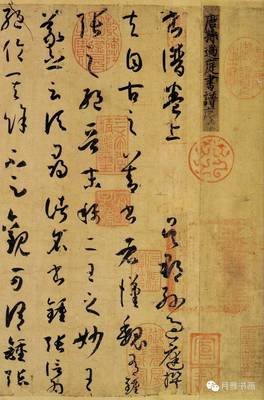 唐孫過庭書譜
書譜卷上 吳郡孫過庭撰
夫自古之善書者漢魏有鍾
張之絕晉末稱二王之妙王
羲之云頃尋諸名書鍾張信為
絕倫其餘不足觀可謂鍾張
月雅书画